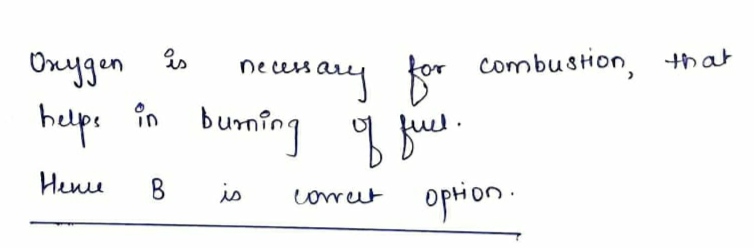 Oxygen is necessary for combustion, that
helps in burning of fuel.
Hence B is correct option.